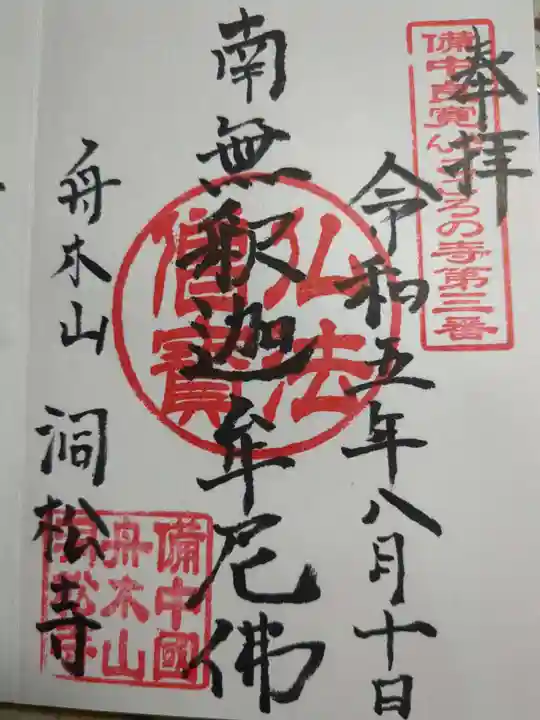 奉拝
備中良寛んころの寺第三番
令和五年八月十日
南無釈迦牟尼佛
仏法僧寳
舟木山 洞松寺
備中國舟木山洞松寺